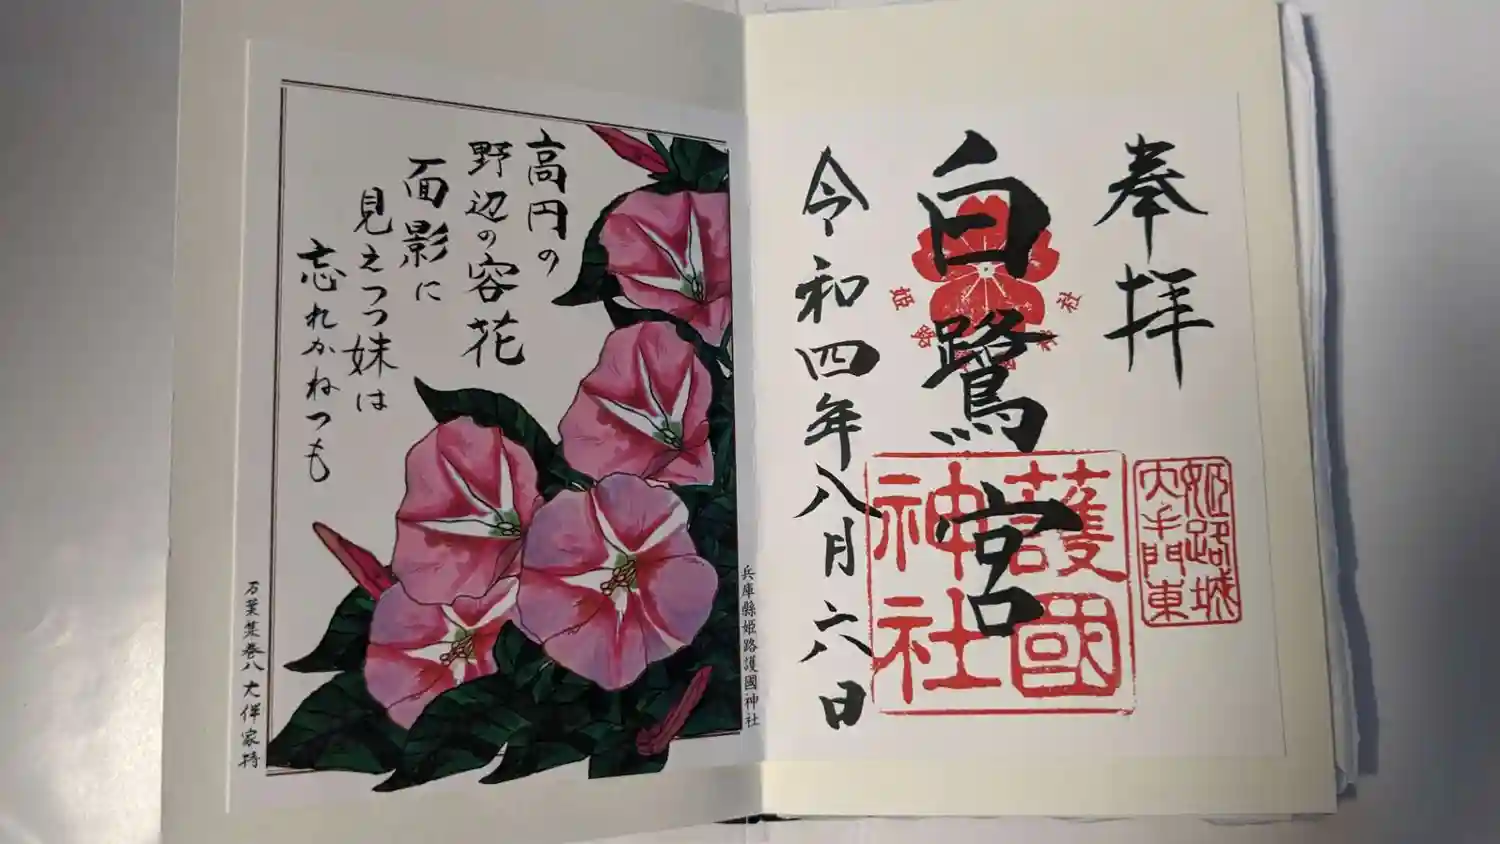 奉拝
姫路城
大手門東
白鷺宮
姫路
社
護國
神社
令和四年八月六日
兵庫縣姫路護國神社
高円の
野辺の容花
面影に
見えつつ妹は
忘れかねつも
万葉集巻八 大伴家持